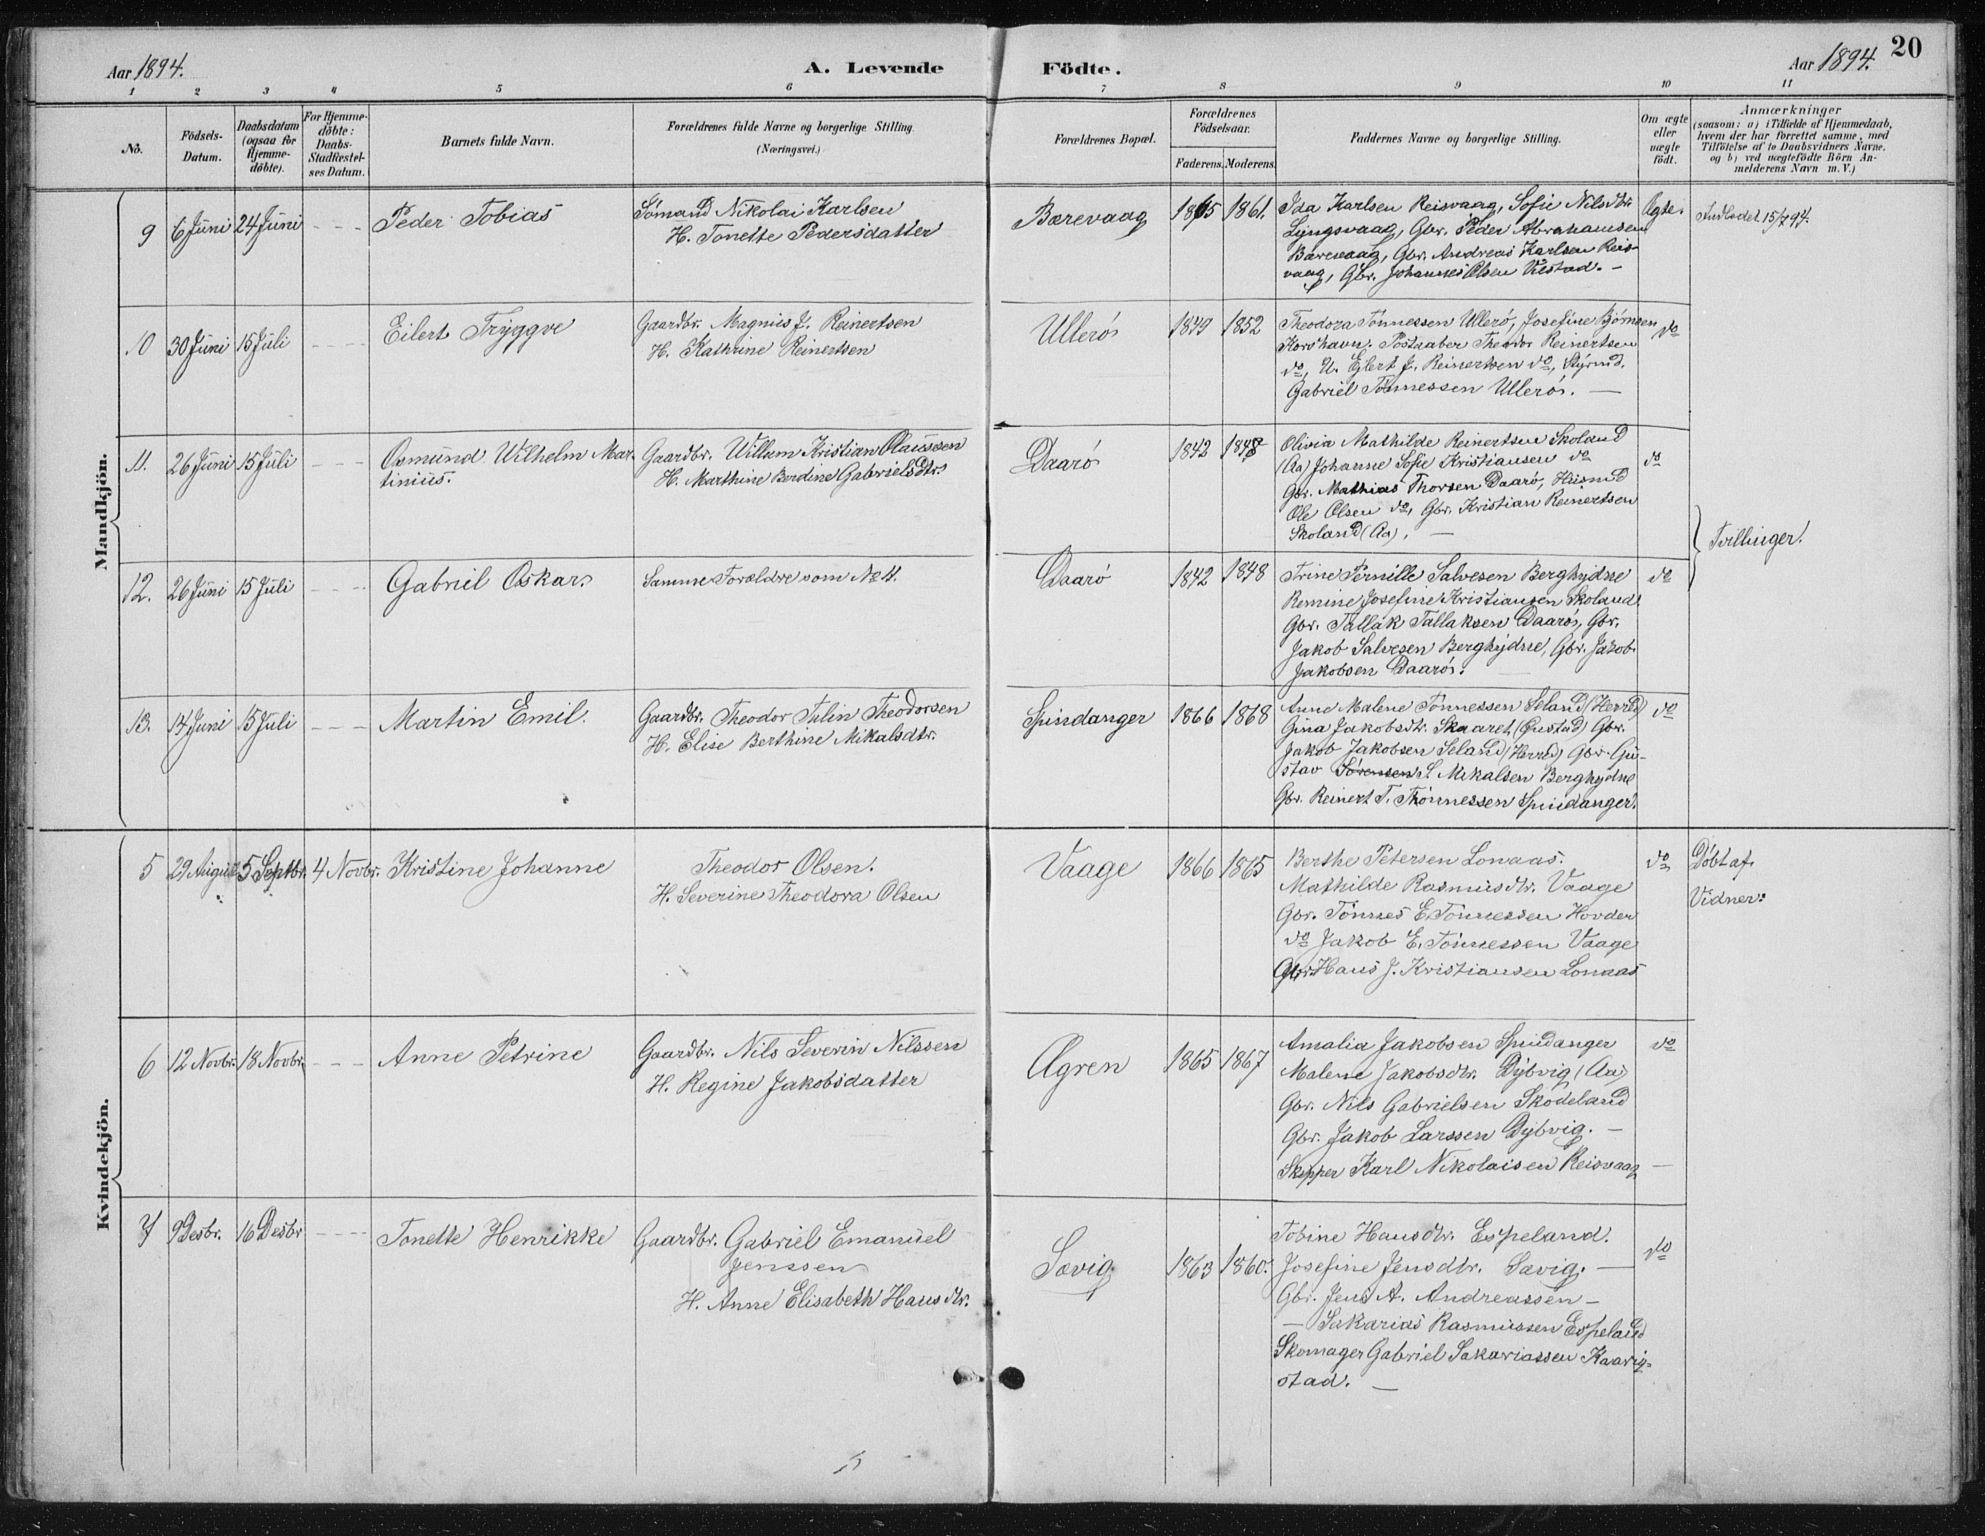 Aar 1894.
A. Levende Födte.
Aar 1894.
20
1 2 3 4 5 6 7 8 9 10 11
No.
Födsels-
Datum.
Daabsdatum
(ogsaa for
Hjemme-
döbte).
For Hjemme-
döbte:
Daabs-
Stadfæstel-
ses Datum.
Barnets fulde Navn.
Forældrenes fulde Navne og borgerlige Stilling.
(Næringsvei.)
Forældrenes Bopæl.
Forældrenes
Födselsaar.
Faderens. Moderens.
Faddernes Navne og borgerlige Stilling.
Om ægte
eller
uægte
födt.
Anmærkninger
(saasom: a) i Tilfælde af Hjemmedaab,
hvem der har forrettet samme, med
Tilföielse af to Daabsvidners Navne.
og b) ved uægtefödte Börn An-
melderens Navn m. V.)
Mandkjön.
9 6 Juni 24 Juni - - - Peder Tobias
Sömand Nikolai Karlsen
H. Tonette Pedersdatter
Barevaag 1865 1861.
Ida Karlsen Reisvaag, Sofie Nilsdtr.
Lyngsvaag, Gbr. Peder Abrahamsen
Barevaag, Gbr. Andreas Karlsen Reis-
vaag, Gbr. Johannes Olsen Viestad. -
Ægte.
Indladet 15/7 94.
10 30 Juni 15 Juli - - - Eilert Tryggve
Gaardbr. Magnus J. Reinertsen
H. Kathrine Reinertsen
Ullerö 1849 1852
Theodora Tönnessen Ullerö, Josefine Björnsen
Korshavn. Postaaber Theodor Reinertsen
do, U. Eglert J. Reinertsen do, Styrmd.
Gabriel Tönnessen Ullerö. -
do
11. 26 Juni 15 Juli - - - Osmund Wilhelm Mar-
tinius.
Gaardbr. Willum Kristian Olaussen
H. Marthine Berdine Gabrielsdtr.
Daarö 1842 1848
Olivia Mathilde Reinertsen Skoland
(Aa) Johanne Sofie Kristiansen do
Gbr. Mathias Thorsen Daarö, Husmd
Ole Olsen do, Gbr. Kristian Reinertsen
Skoland (Aa). -
do
Tvillinger.
12. 26 Juni 15 Juli - - - Gabriel Oskar.
Samme Forældre som No 11.
Daarö 1842 1848
Trine Pernille Salvesen Berghydne
Remine Josefine Kristiansen Skoland
Gbr. Tallak Tallaksen Daarö, Gbr.
Jakob Salvesen Berghydne, Gbr. Jakob
Jakobsen Daarö.
do
13. 14 Juni 15 Juli - - - Martin Emil.
Gaardbr. Theodor Tulin Theodorsen
H. Elise Berthine Mikalsdtr.
Spindanger 1866 1868
Anne Malene Tönnessen Seland (Herred)
Gina Jakobsdtr. Skaaret, (Öustad) Gbr.
Jakob Jakobsen Seland (Herred) Gbr. Gu-
stav Sörensen S. Mikalsen Berghydne
Gbr. Reinert T. Thönnessen Spindanger.
do
Kvindekjön.
5 29 August 5 Septbr. 4 Novbr. Kristine Johanne
Theodor Olsen.
H. Severine Theodora Olsen
Vaage 1866 1865
Berthe Petersen Lonaas.
Mathilde Rasmusdtr. Vaage
Gbr. Tönnes E. Tönnessen Hovder
do Jakob E. Tönnessen Vaage
Gbr. Hans J. Kristiansen Lonaas
do
Döbt af
Vidner:
6 12 Novbr. 18 Novbr. - - - Anne Petrine
Gaardbr. Nils Severin Nilssen
H. Regine Jakobsdatter
Agren 1865 1867
Amalia Jakobsen Spindanger
Malene Jakobsdtr. Dybvig (Aa)
Gbr. Nils Gabrielsen Sködeland
Gbr. Jakob Larssen Dybvig. -
Skipper Karl Nikolaisen Reisvaag -
do
7 9 Desbr. 16 Desbr - - - Tonette Henrikke
Gaardbr. Gabriel Emanuel
Jenssen
H. Anne Elisabeth Hansdtr.
Sævig 1863 1860.
Tobine Hansdtr. Espeland.
Josefine Jensdtr. Sævig. -
Gbr. Jens A. Andreassen -
- Sakarias Rasmussen Espeland
Skomager Gabriel Sakariassen Kaarig-
stad. -
do